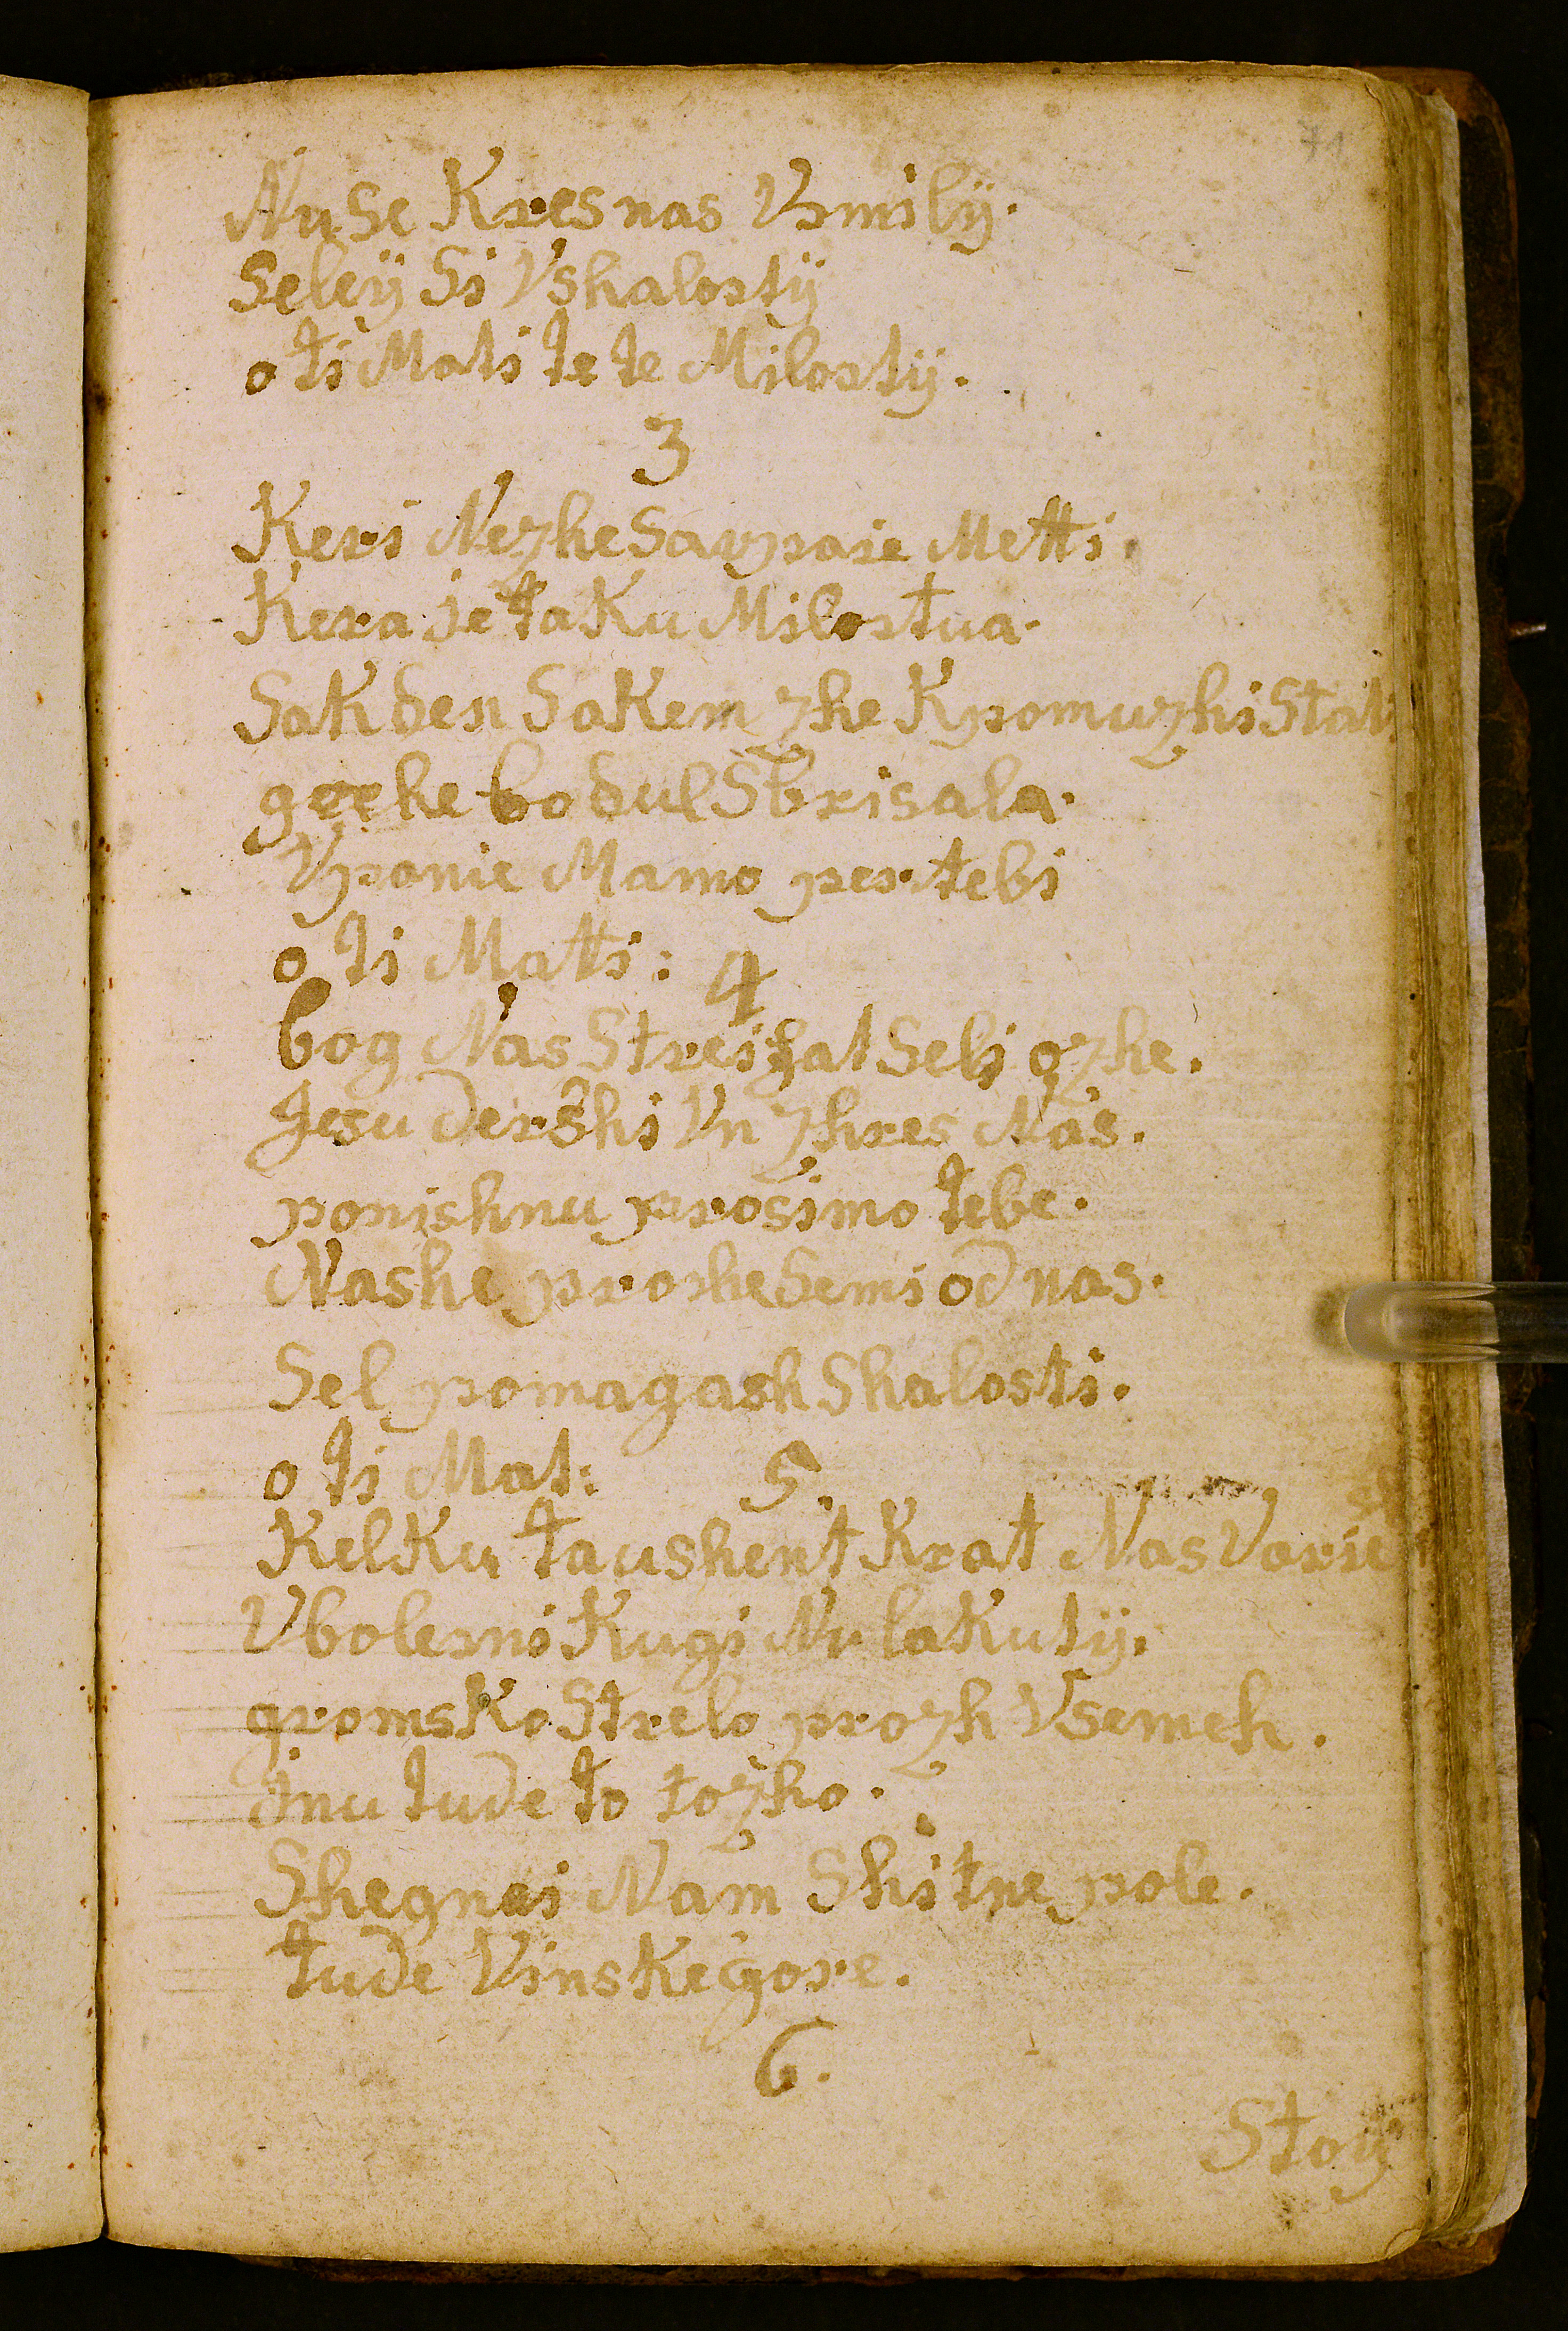 71
Nu Se Kres nas Vsmilÿ.
Seleÿ Si Vshalostÿ
o ti Mati te te Milostÿ.
3
Keri Nezhe Savpaie Metti.
Kera je taku Milostua.
Sakden Sakem zhe Kpomuzhi Stat:
grehe bo dul Sbrisala.
Vponie Mamo per tebi
o ti Matti: 4
bog Nas Streifat Seli ozhe.
Jesu dershi Vn zhres Nas.
ponishnu prosimo tebe.
Nashe proshe Semi od nas.
Sel pomagash Shalosti.
o ti Mat: 5.
KelKu taushent Krat Nas Varie sh
Vbolesni Kugi Nu lakutÿ.
gromsko Strelo prozh Vsemeh.
inu tude to tozho.
Shegnai Nam Shitne pole.
tude Vinske gore.
6.
Stoÿ